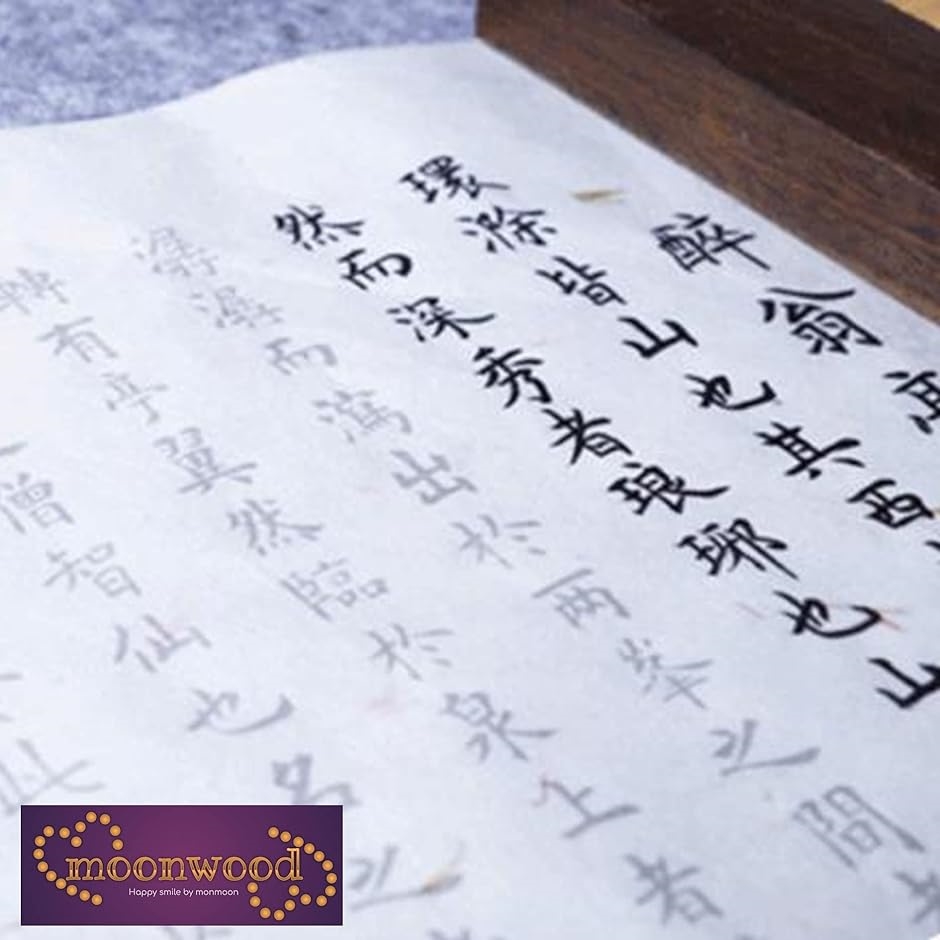 醉翁亭
環滁皆山也其西
然而深秀者琅琊也山
潺潺而瀉出於兩峯之間
轉有亭翼然臨於泉上者
僧智仙也名之
此
moonwood
Happy smile by monmoon